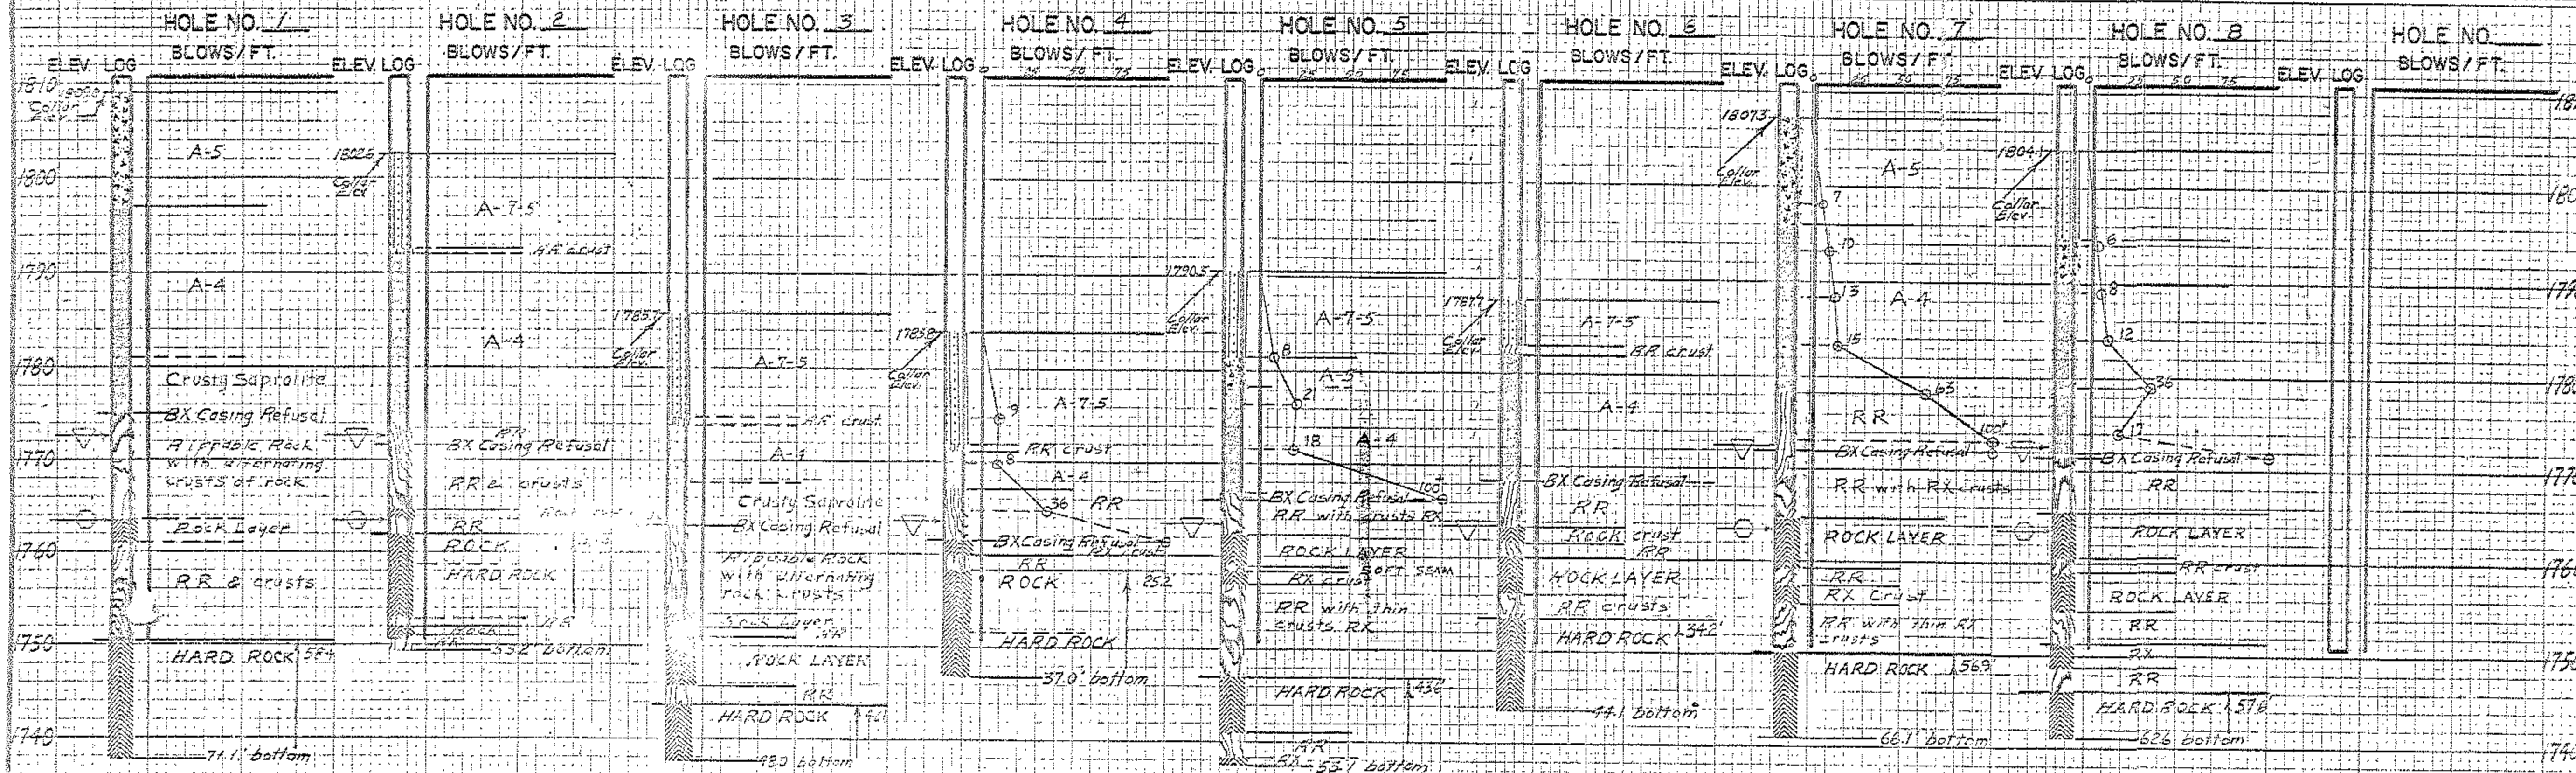 HOLE NO. 1
BLOWS/FT.
ELEV. LOG
1810
Collar Elev.
A-5
1800
1790
A-4
1780
Crusty Saprolite
BX Casing Refusal
Rippable Rock
with alternating
crusts of rock
1770
Rock Layer
1760
RR & crusts
1750
HARD ROCK 58.4
1740
71.1' bottom
HOLE NO. 2
BLOWS/FT.
ELEV. LOG
1802.6
Collar
Elev
A-7-5
RR crust
A-4
BX Casing Refusal
RR & crusts
RR
ROCK
HARD ROCK
RR
Rock
RR
bottom
HOLE NO. 3
BLOWS/FT.
ELEV. LOG
1785.7
Collar
Elev.
A-7-5
RR crust
A-4
Crusty Saprolite
BX Casing Refusal
Rippable Rock
with alternating
rock crusts
Rock Layer
RR
ROCK LAYER
RR
HARD ROCK
bottom
HOLE NO. 4
BLOWS/FT.
ELEV. LOG
0 25 50 75
Collar
Elev.
9
A-7-5
RR crust
A-4
36
RR
BX Casing Refusal
RR
ROCK
25.2'
HARD ROCK
37.0' bottom
HOLE NO. 5
BLOWS/FT.
ELEV. LOG
0 25 50 75
1790.5
Collar
Elev.
A-7-5
8
A-5
21
18
A-4
100+
BX Casing Refusal
RR with crusts RX
ROCK LAYER
SOFT SEAM
RX crust
RR with thin
crusts RX
HARD ROCK 43.6'
RR
RX
53.7 bottom
HOLE NO. 6
BLOWS/FT.
ELEV. LOG
1787.7
Collar
Elev.
A-7-5
RR crust
A-4
BX Casing Refusal
RR
Rock crust
RR
ROCK LAYER
RR crusts
HARD ROCK 34.2'
44.1 bottom
HOLE NO. 7
BLOWS/FT.
ELEV. LOG
0 25 50 75
1807.3
Collar
Elev.
A-5
7
10
13
A-4
15
63
RR
100+
BX Casing Refusal
RR with RX crusts
ROCK LAYER
RR
RX Crust
RR with thin RX
crusts
HARD ROCK 56.9'
66.1' bottom
HOLE NO. 8
BLOWS/FT.
ELEV. LOG
0 25 50 75
1804.1
Collar
Elev.
6
8
12
36
17
BX Casing Refusal
RR
ROCK LAYER
RR crust
ROCK LAYER
RR
RX
RR
HARD ROCK 57.6'
62.6 bottom
HOLE NO.
BLOWS/FT.
ELEV. LOG